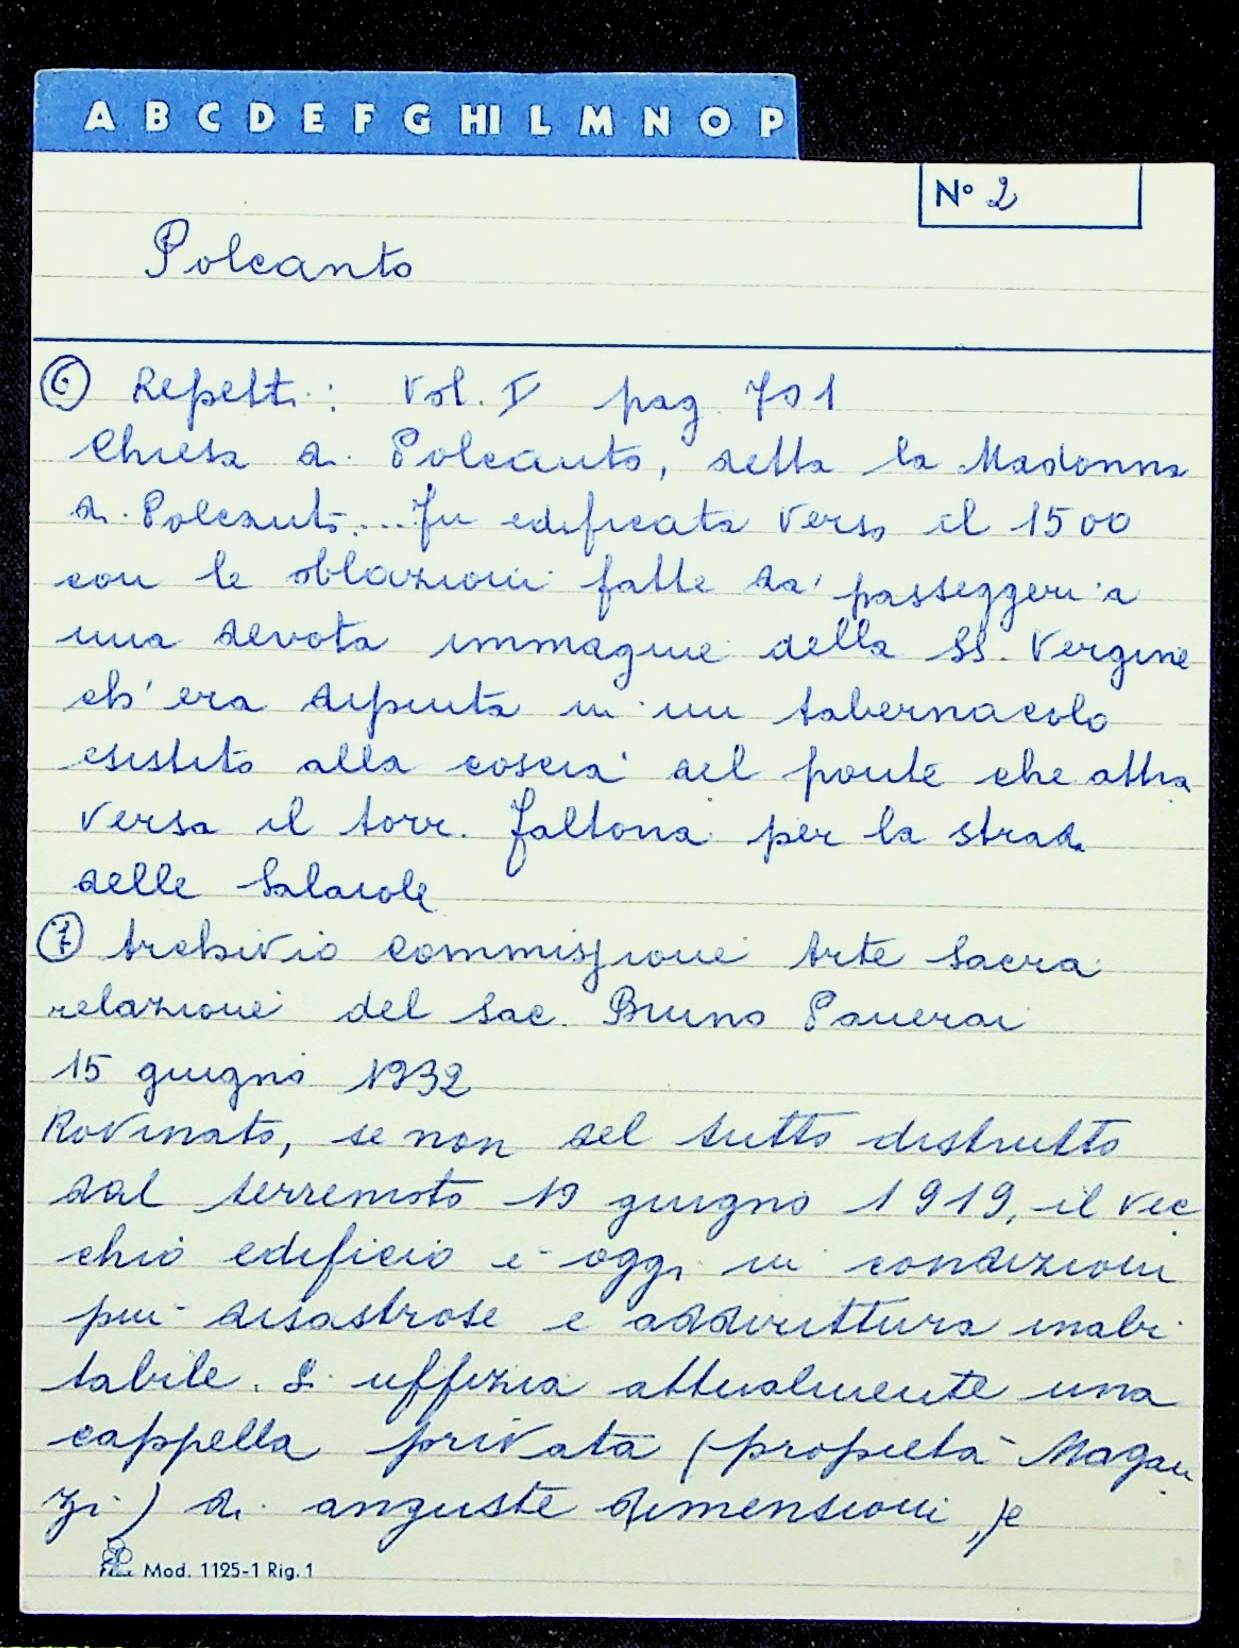 A B C D E F G HI L M N O P
N° 2
Polcanto
⑥ Repetti: Vol. V pag. 701
Chiesa di Polcanto, detta la Madonna
di Polcanto... Fu edificata verso il 1500
con le oblazioni fatte da' passeggeri a
una devota immagine della SS. Vergine
ch'era dipinta in un tabernacolo
esistito alla coscia del ponte che attra
versa il torr. Faltona per la strada
delle Salaiole
⑦ Archivio Commissione Arte Sacra
relazione del Sac. Bruno Panerai
15 giugno 1932
Rovinato, se non del tutto distrutto
dal terremoto 19 giugno 1919, il vec
chio edificio è oggi in condizioni
più disastrose e addirittura inabi
tabile. Si uffizia attualmente una
cappella privata (proprietà Magan
zi) di anguste dimensioni, e
Mod. 1125-1 Rig. 1